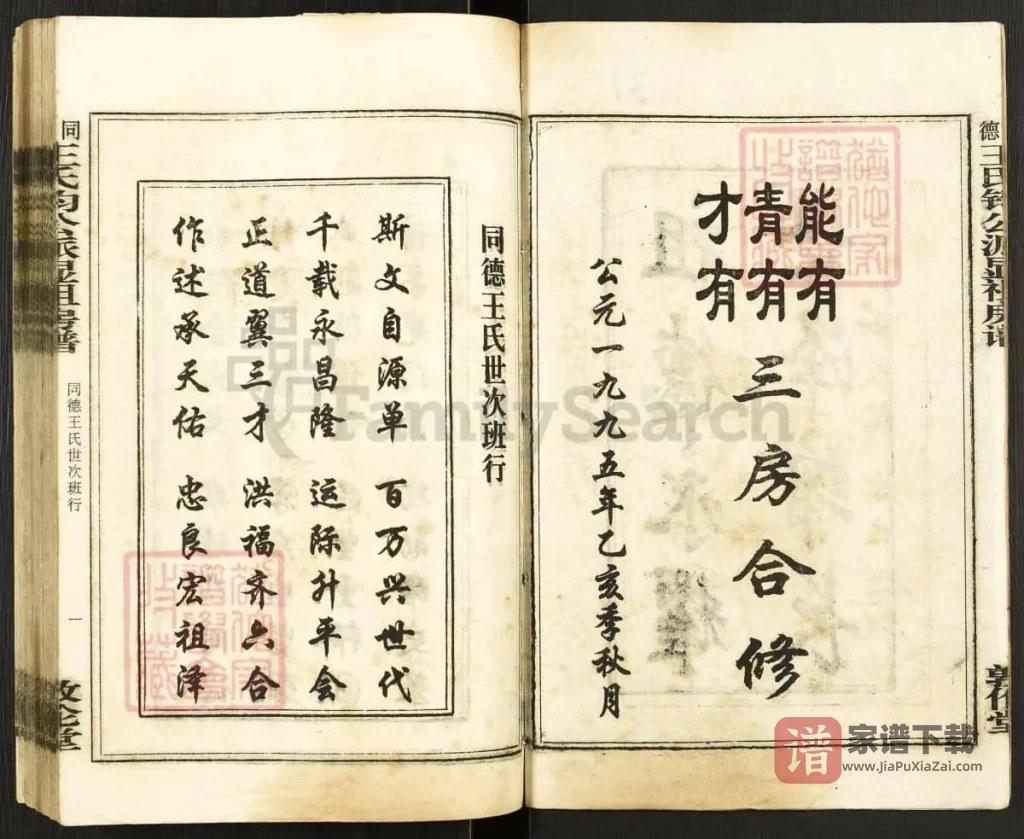 能有
青有
才有
三房合修
公元一九九五年乙亥季秋月
同德王氏世次班行
斯文自源单 百万兴世代
千载永昌隆 运际升平会
正道翼三才 洪福齐六合
作述承天佑 忠良宏祖泽
同德王氏世次班行
一
FamilySearch
谱
家谱下载
www.JiaPuXiaZai.com